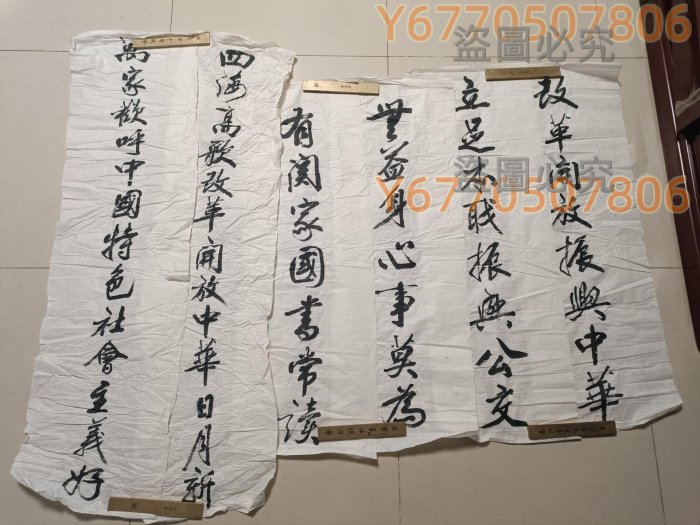 Y6770507806
盜圖必究
改革開放振興中華
立足本职振興公交
無益身心事莫為
有関家國書常读
四海高歌改革開放中華日月新
萬家歡呼中國特色社會主義好
盜圖必究
Y6770507806